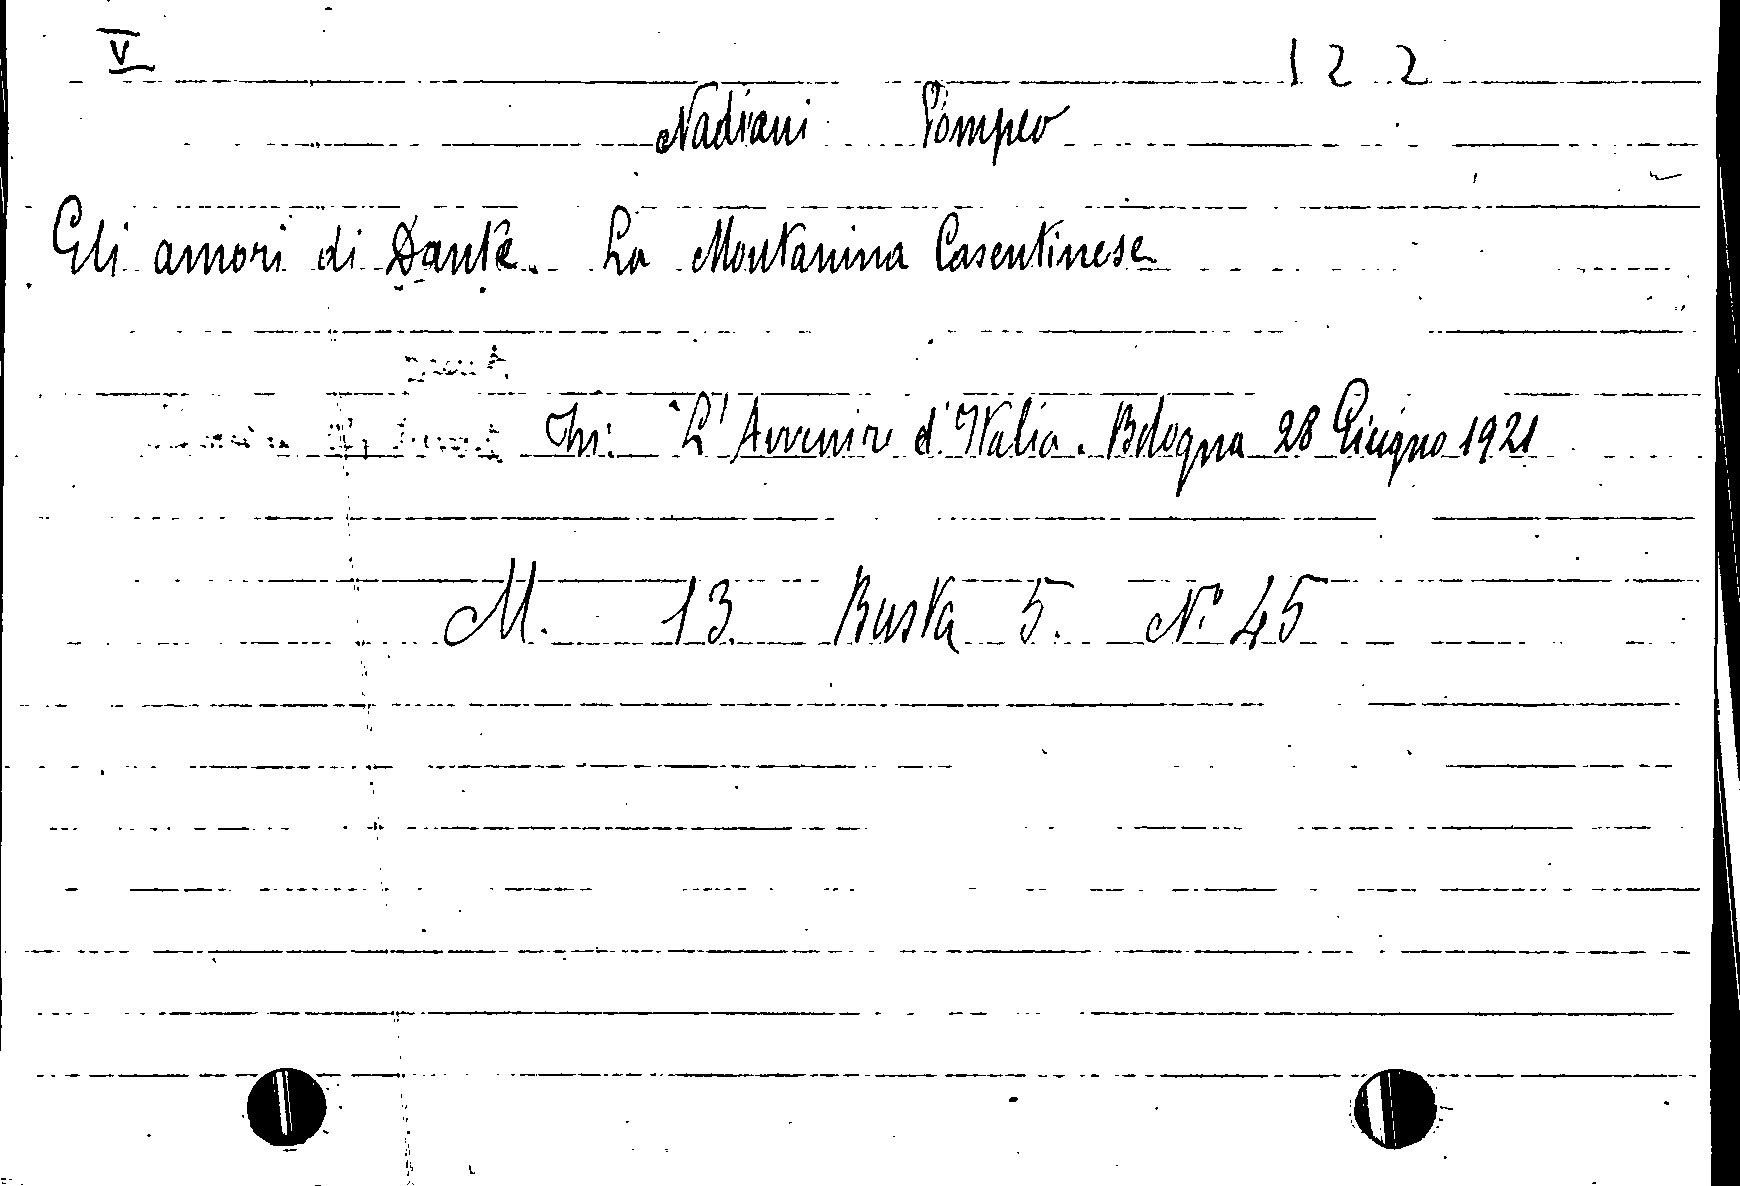 V 122
Nadiani Pompeo
Gli amori di Dante. La Montanina Casentinese
In: "L'Avvenire d'Italia. Bologna 28 Giugno 1921
M. 13. Busta 5. N.° 45